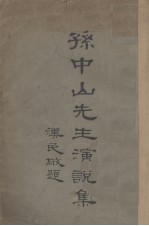 孫中山先生演說集
漢民敬題